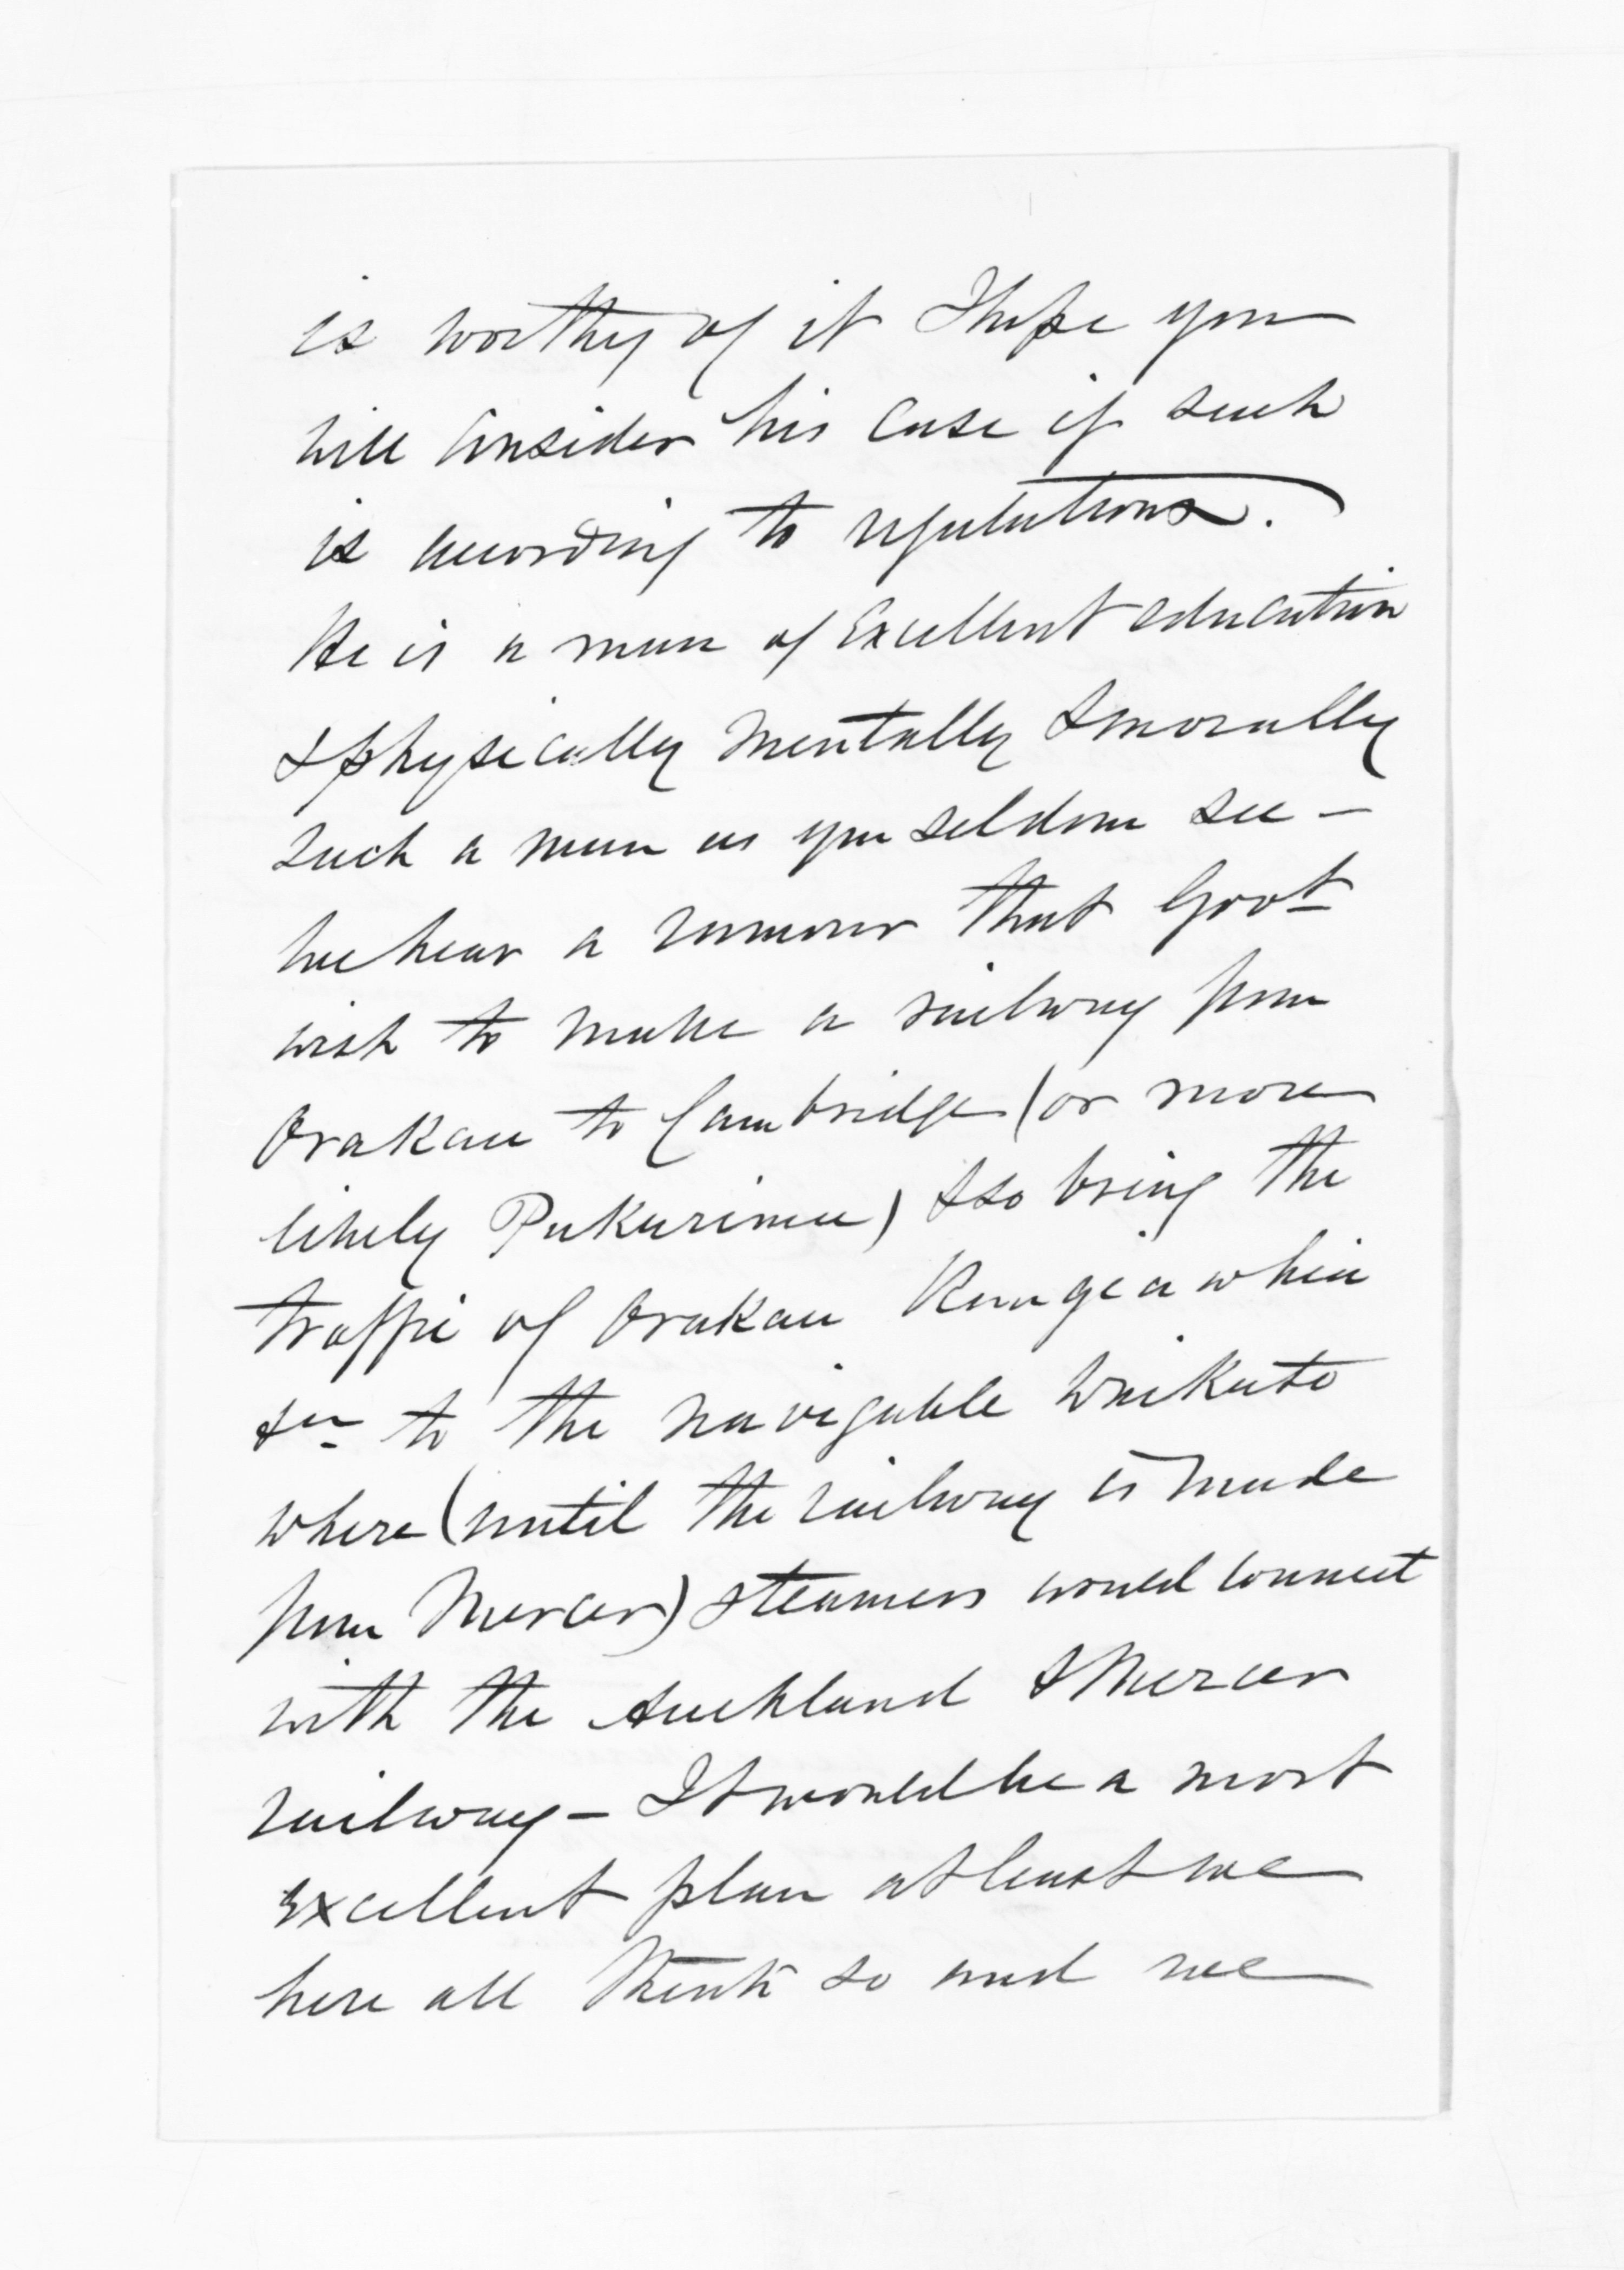 is worthy of it I hope you
will consider his case if such
is according to regulations.
He is a man of Excellent education
& physically mentally & morally
such a man as you seldom see -
We hear a rumour that Govt
wish to make a railway from
Orakau to Cambridge (or more
likely Pukurimu) & so bring the
traffic of Orakau Rangiawhia
&c to the navigable Waikato
where (until the railway is made
from Mercer) steamers would connect
with the Auckland & Mercer
railway - It would be a most
Excellent plan at least we
here all think so and we